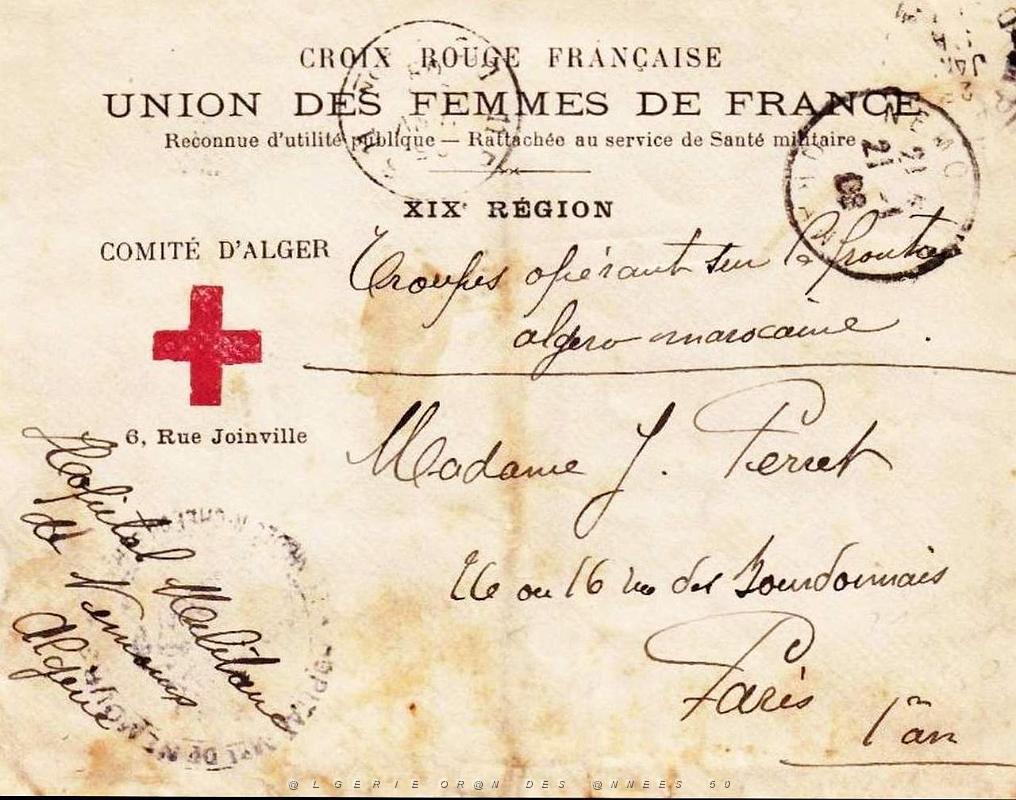 CROIX ROUGE FRANÇAISE
UNION DES FEMMES DE FRANCE
Reconnue d'utilité publique — Rattachée au service de Santé militaire
XIXᵉ RÉGION
COMITÉ D'ALGER
Troupes opérant sur la frontière
algéro-marocaine.
6, Rue Joinville
Madame J. Perret
26 ou 16 rue des Bourdonnais
Paris
1er arr
Hôpital Militaire
de Nemours
Algérie
21 -1
08
HOPITAL MRE DE NEMOURS
@LGERIE OR@N DES @NNEES 50